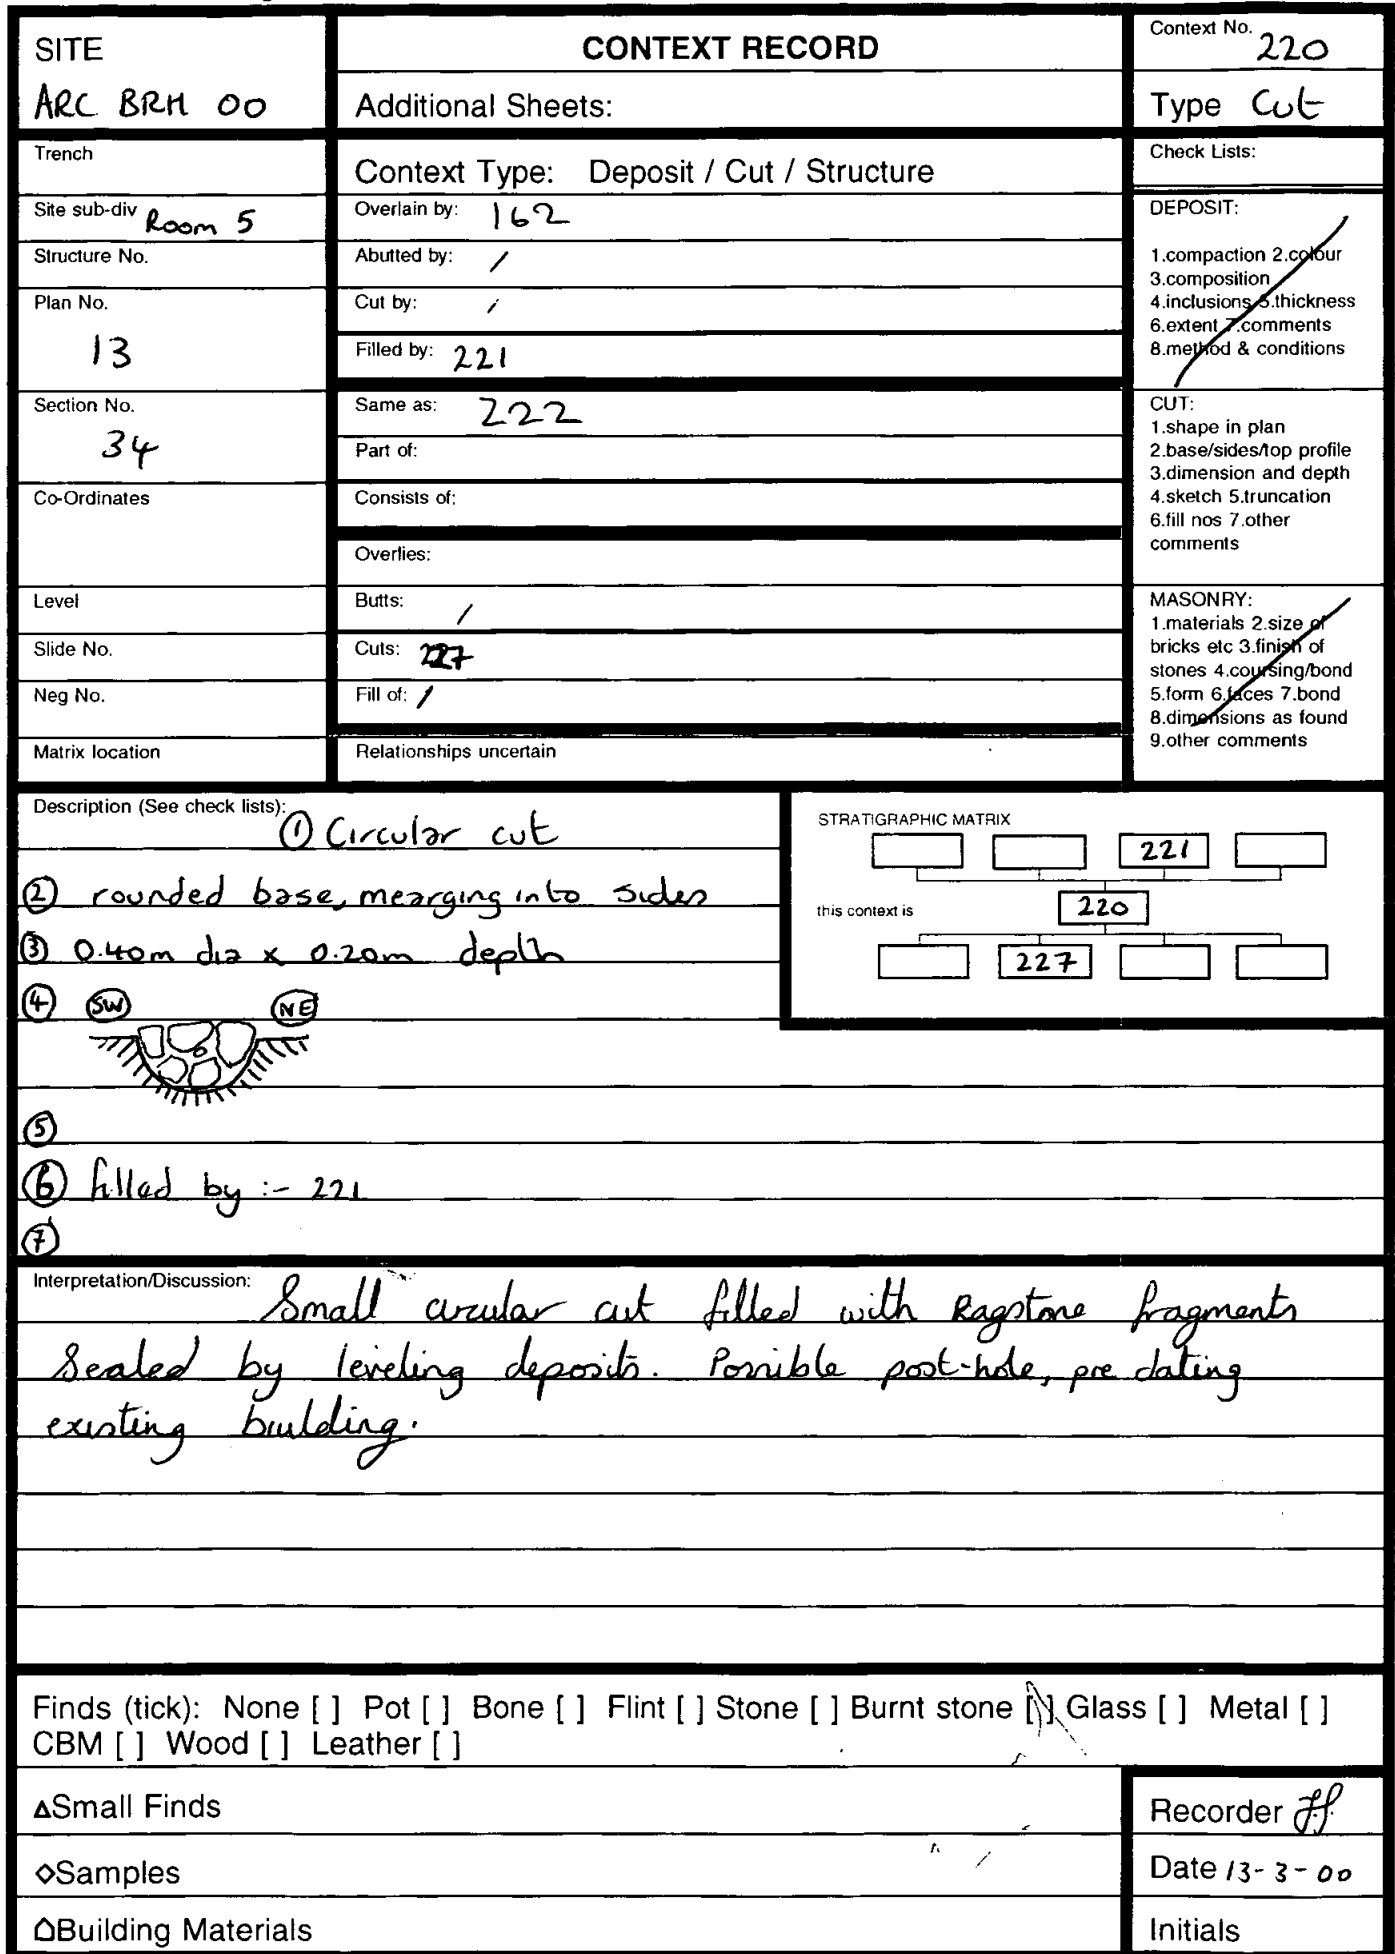 SITE
ARC BRH 00
CONTEXT RECORD
Additional Sheets:
Context No. 220
Type Cut
Trench
Site sub-div Room 5
Structure No.
Plan No.
13
Section No.
34
Co-Ordinates
Level
Slide No.
Neg No.
Matrix location
Context Type: Deposit / Cut / Structure
Overlain by: 162
Abutted by: /
Cut by: /
Filled by: 221
Same as: 222
Part of:
Consists of:
Overlies:
Butts: /
Cuts: 227
Fill of: /
Relationships uncertain
Check Lists:
DEPOSIT:
1.compaction 2.colour
3.composition
4.inclusions 5.thickness
6.extent 7.comments
8.method & conditions
CUT:
1.shape in plan
2.base/sides/top profile
3.dimension and depth
4.sketch 5.truncation
6.fill nos 7.other
comments
MASONRY:
1.materials 2.size of
bricks etc 3.finish of
stones 4.coursing/bond
5.form 6.faces 7.bond
8.dimensions as found
9.other comments
Description (See check lists):
① Circular cut
② rounded base, mearging into sides
③ 0.40m dia x 0.20m depth
④ SW NE
⑤
⑥ filled by :- 221
⑦
STRATIGRAPHIC MATRIX
221
this context is 220
227
Interpretation/Discussion: Small circular cut filled with Ragstone fragments
Sealed by leveling deposits. Possible post-hole, pre dating
existing building.
Finds (tick): None [ ] Pot [ ] Bone [ ] Flint [ ] Stone [ ] Burnt stone [\] Glass [ ] Metal [ ]
CBM [ ] Wood [ ] Leather [ ]
△Small Finds
◇Samples
⌂Building Materials
Recorder
Date 13-3-00
Initials